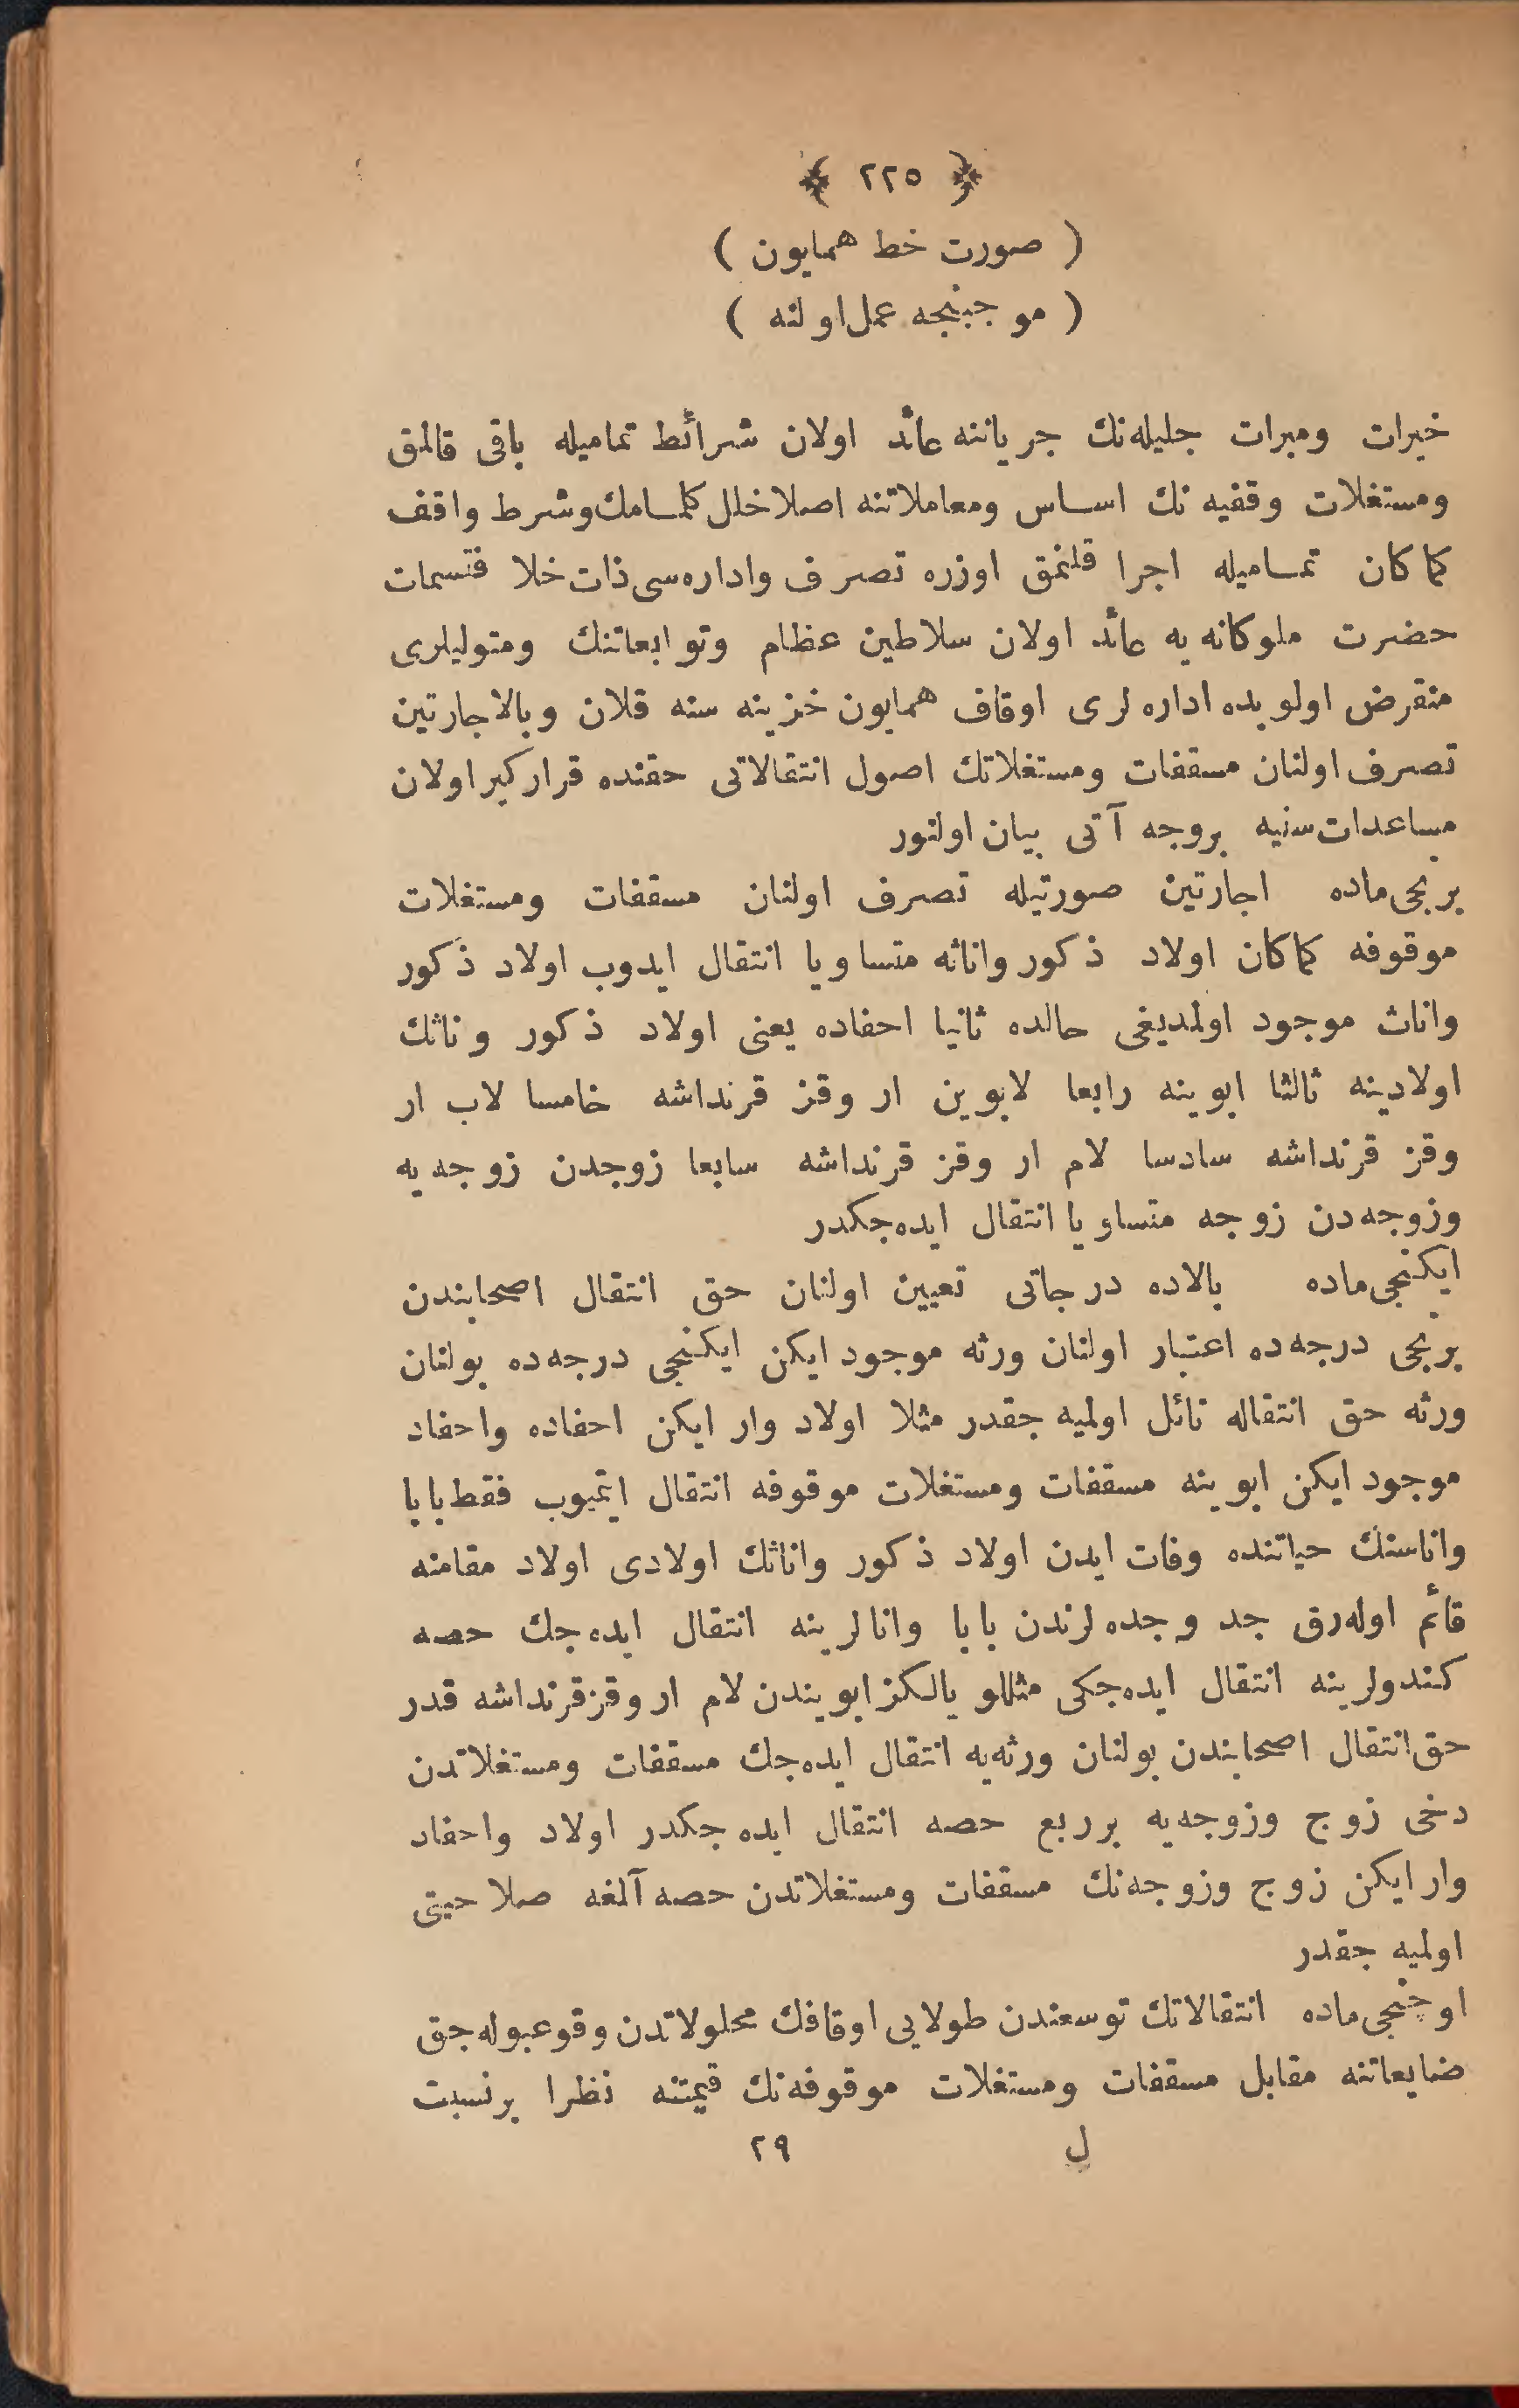 ﴿ ٢٢٥ ﴾
( صورت خط همايون )
( موجبنجه عمل اولنه )
خيرات ومبرات جليله‌نك جرياننه عائد اولان شرائط تماميله باقى قالمق
ومستغلات وقفيه نك اساس ومعاملاتنه اصلا خلل كلمامك وشرط واقف
كماكان تماميله اجرا قلنمق اوزره تصرف واداره‌سى ذات خلافتسمات
حضرت ملوكانه يه عائد اولان سلاطين عظام وتوابعاتنك ومتوليلرى
منقرض اولوبده اداره لرى اوقاف همايون خزينه سنه قلان وبالاجارتين
تصرف اولنان مسقفات ومستغلاتك اصول انتقالاتى حقنده قراركير اولان
مساعدات سنيه بروجه آتى بيان اولنور
برنجى ماده اجارتين صورتيله تصرف اولنان مسقفات ومستغلات
موقوفه كماكان اولاد ذكور واناثه متساويا انتقال ايدوب اولاد ذكور
واناث موجود اولمديغى حالده ثانيا احفاده يعنى اولاد ذكور وناثك
اولادينه ثالثا ابوينه رابعا لابوين ار وقز قرنداشه خامسا لاب ار
وقز قرنداشه سادسا لام ار وقز قرنداشه سابعا زوجدن زوجه يه
وزوجه‌دن زوجه متساويا انتقال ايده‌جكدر
ايكنجى ماده بالاده درجاتى تعيين اولنان حق انتقال اصحابندن
برنجى درجه‌ده اعتبار اولنان ورثه موجود ايكن ايكنجى درجه‌ده بولنان
ورثه حق انتقاله نائل اولميه جقدر مثلا اولاد وار ايكن احفاده واحفاد
موجود ايكن ابوينه مسقفات ومستغلات موقوفه انتقال ايتميوب فقط بابا
واناسنك حياتنده وفات ايدن اولاد ذكور واناثك اولادى اولاد مقامنه
قائم اوله‌رق جد وجده لرندن بابا وانالرينه انتقال ايده‌جك حصه
كندولرينه انتقال ايده‌جكى مثللو يالكز ابويندن لام ار وقز قرنداشه قدر
حق انتقال اصحابندن بولنان ورثه‌يه انتقال ايده‌جك مسقفات ومستغلاتدن
دخى زوج وزوجه‌يه برربع حصه انتقال ايده جكدر اولاد واحفاد
وار ايكن زوج وزوجه‌نك مسقفات ومستغلاتدن حصه آلمغه صلاحيتى
اولميه جقدر
اوچنجى ماده انتقالاتك توسعندن طولايى اوقافك محلولاتدن وقوعبوله‌جق
ضايعاتنه مقابل مسقفات ومستغلات موقوفه‌نك قيمتنه نظرا برنسبت
ل ٢٩